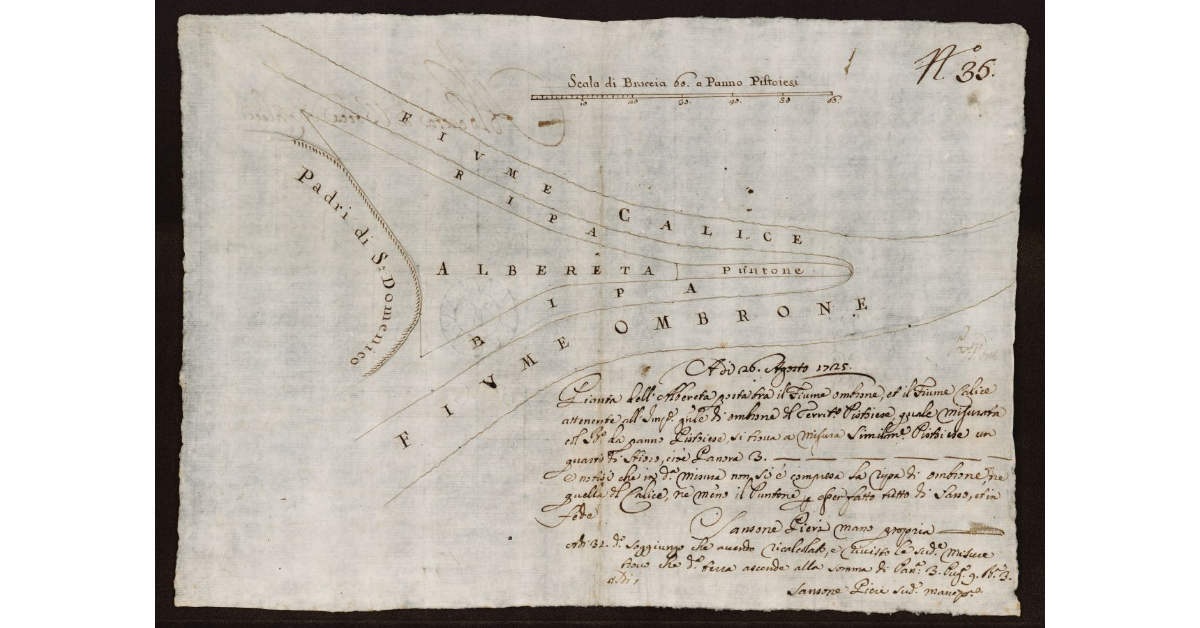 N.º 35.
Scala di Braccia 60. a Panno Pistoiesi
10 20. 30. 40. 50 60.
FIVME CALICE
RIPA
Padri di S. Domenico
ALBERETA
Puntone
RIPA
FIVME OMBRONE
Adi 26. Agosto 1725.
Pianta dell'Albereta posta tra il Fiume ombrone, et il Fiume Calice
attenente all'Imp.ª di ombrone d Territ.º Pistoiese, quale misurata
col B.º da panno Pistoiese, si trova a misura Similm.e Pistoiese un
quarto di Stioro, cioè Panora 3.
e notisi che in d.ª misura non si è compresa la ripa di ombrone, ne
quella d Calice, ne meno il Puntone p esser fatto tutto di Sasso, et in
fede
Sansone Pieri mano propria
Adi 31. d.º Soggiungo che avendo ricalcolato, e rivisto le sud.e misure
trovo che d.ª terra ascende alla somma di Pan.ª 3. 9. 3.
Sansone Pieri sud.º mano p.ª